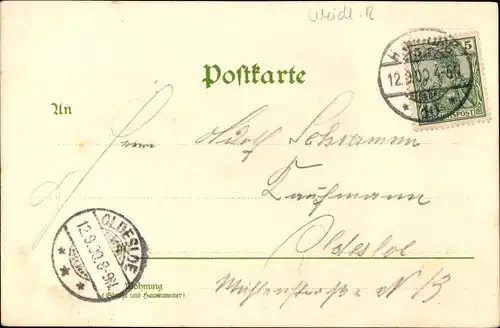 Weidl. R
5
HAMBURG
12.9.00.4-5N
REICHSPOST
Postkarte
An
Herrn Adolf Schramm
Kaufmann
Oldesloe
OLDESLOE
12.9.00.8-9N.
Wohnung
(Straße und Hausnummer)
Mühlenstrasse No 13